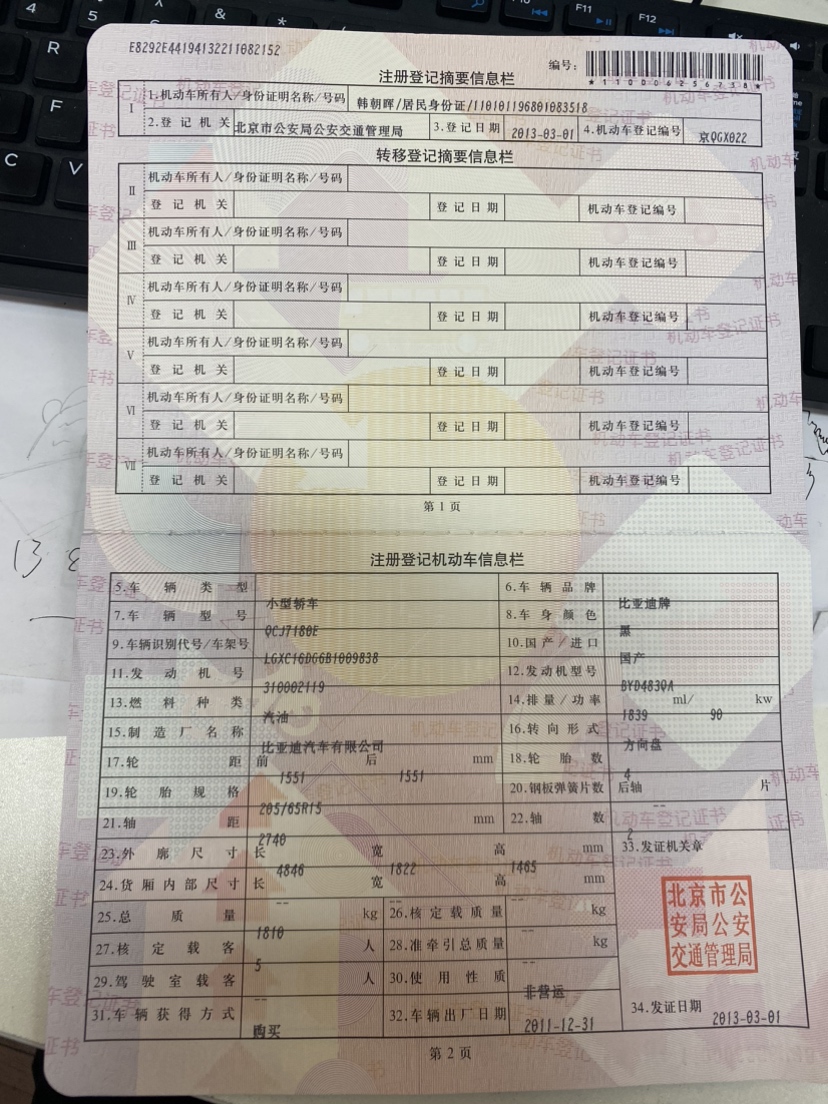 E8292E44194132211082152
编号：
*110005256738*
注册登记摘要信息栏
I 1.机动车所有人/身份证明名称/号码 韩朝晖/居民身份证/110101196801083518
2.登记机关 北京市公安局公安交通管理局 3.登记日期 2013-03-01 4.机动车登记编号 京QGX022
转移登记摘要信息栏
II 机动车所有人/身份证明名称/号码
登记机关 登记日期 机动车登记编号
III 机动车所有人/身份证明名称/号码
登记机关 登记日期 机动车登记编号
IV 机动车所有人/身份证明名称/号码
登记机关 登记日期 机动车登记编号
V 机动车所有人/身份证明名称/号码
登记机关 登记日期 机动车登记编号
VI 机动车所有人/身份证明名称/号码
登记机关 登记日期 机动车登记编号
VII 机动车所有人/身份证明名称/号码
登记机关 登记日期 机动车登记编号
第1页
注册登记机动车信息栏
5.车辆类型 小型轿车 6.车辆品牌 比亚迪牌
7.车辆型号 QCJ7180E 8.车身颜色 黑
9.车辆识别代号/车架号 LGXC16DG6B1009838 10.国产/进口 国产
11.发动机号 310002119 12.发动机型号 BYD483QA
13.燃料种类 汽油 14.排量/功率 1839 ml/ 90 kw
15.制造厂名称 比亚迪汽车有限公司 16.转向形式 方向盘
17.轮距 前 1551 后 1551 mm 18.轮胎数 4
19.轮胎规格 205/65R15 20.钢板弹簧片数 后轴 -- 片
21.轴距 2740 mm 22.轴数 2
23.外廓尺寸 长 4846 宽 1822 高 1465 mm 33.发证机关章
24.货厢内部尺寸 长 -- 宽 -- 高 -- mm
25.总质量 1810 kg 26.核定载质量 -- kg
27.核定载客 5 人 28.准牵引总质量 -- kg
29.驾驶室载客 -- 人 30.使用性质 非营运
31.车辆获得方式 购买 32.车辆出厂日期 2011-12-31 34.发证日期 2013-03-01
北京市公
安局公安
交通管理局
第2页